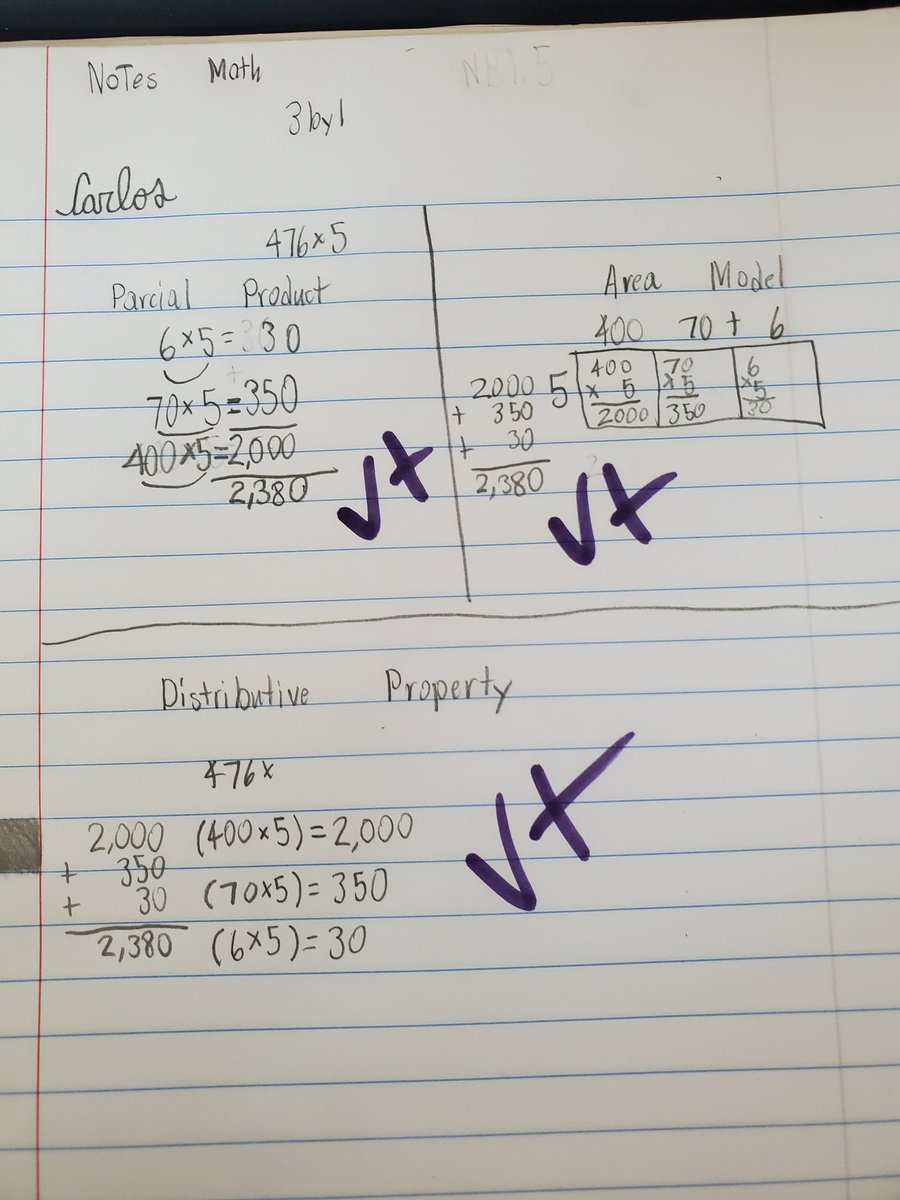 Notes Math NBT.5
3 by 1
Carlos
476×5
Parcial Product
6×5= 30
70×5=350
400×5=2,000
2,380
Area Model
400 70 + 6
5
400 70 6
× 5 ×5 ×5
2000 350 30
2000
+ 350
+ 30
2,380
Distributive Property
476×
2,000 (400×5)=2,000
+ 350
+ 30 (70×5)=350
2,380 (6×5)=30